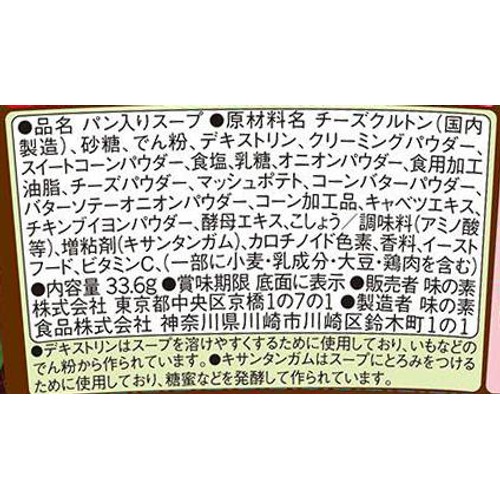 ●品名 パン入りスープ●原材料名 チーズクルトン(国内
製造)、砂糖、でん粉、デキストリン、クリーミングパウダー、
スイートコーンパウダー、食塩、乳糖、オニオンパウダー、食用加工
油脂、チーズパウダー、マッシュポテト、コーンバターパウダー、
バターソテーオニオンパウダー、コーン加工品、キャベツエキス、
チキンブイヨンパウダー、酵母エキス、こしょう/調味料(アミノ酸
等)、増粘剤(キサンタンガム)、カロチノイド色素、香料、イースト
フード、ビタミンC、(一部に小麦・乳成分・大豆・鶏肉を含む)
●内容量 33.6g●賞味期限 底面に表示●販売者 味の素
株式会社 東京都中央区京橋1の7の1 ●製造者 味の素
食品株式会社 神奈川県川崎市川崎区鈴木町1の1
●デキストリンはスープを溶けやすくするために使用しており、いもなどの
でん粉から作られています。●キサンタンガムはスープにとろみをつける
ために使用しており、糖蜜などを発酵して作られています。